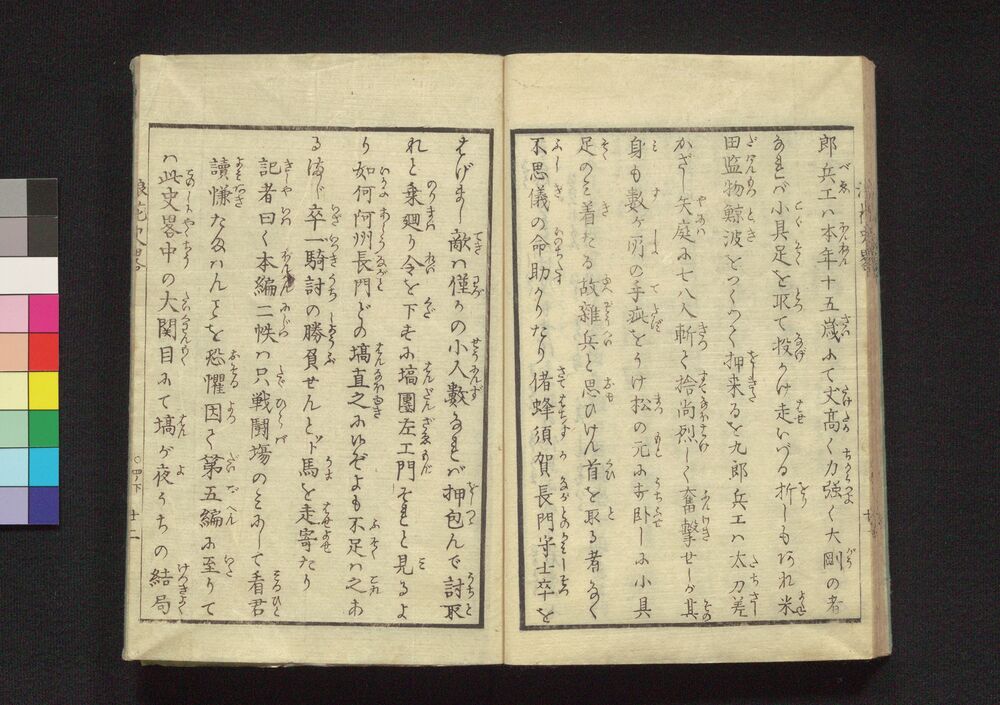 郎兵工ハ本年十五歳にて丈高く力強く大剛の者
なれバ小具足を取て投かけ走いづる折しも沢れ米
田監物鯨波をつくつて押来るを九郎兵工ハ太刀差
かざし矢庭に七八人斬て捨尚烈しく奮撃せしが其
身も数ヶ所の手疵をうけ松の元に打卧しに小具
足のミ着たる故雑兵と思ひけん首を取る者なく
不思儀の命助かりたり偖蜂須賀長門守士卒を
はげまし敵は僅かの小人數なれバ押包んで討取
れと乗廻り令を下すに塙團左エ門それと見るよ
り如何阿州長門どの塙直之にゆぞよも不足ハあ
るまじ卒一騎討の勝負せんとド馬を走寄たり
記者曰く本編二帙ハ只戦闘塲のミにして看君
讀慊たまはんことを恐懼因て第五編に至りて
ハ此史畧中の大関目にて塙が夜うちの結局
浪花史畧
〇四ノ下
廿一